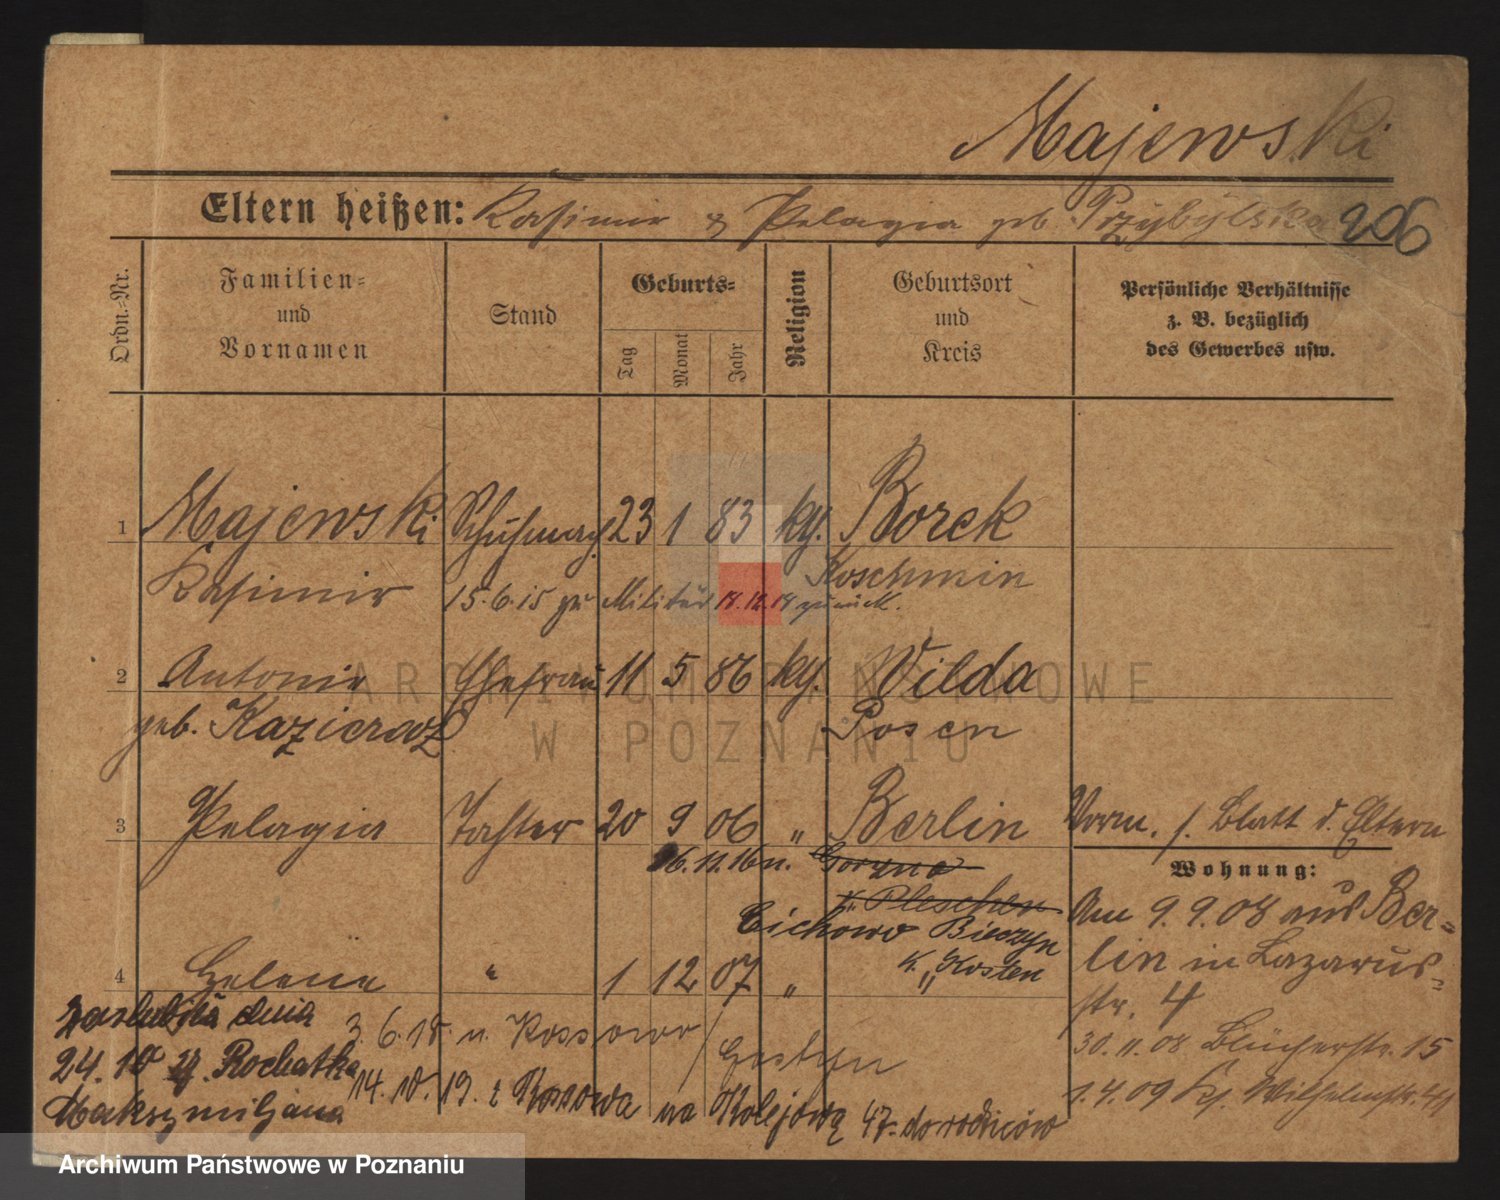 Majewski
Eltern heißen: Kasimir & Pelagia geb. Przybylska 206
Ordn.=Nr.
Familien= und Vornamen
Stand
Geburts=
Tag Monat Jahr
Religion
Geburtsort und Kreis
Persönliche Verhältnisse
z. B. bezüglich
des Gewerbes usw.
1 Majewski Schuhmach. 23 1 83 kg. Borek
Kasimir Koschmin
15.6.15 zu Militär 18.12.18 zurück.
2 Antonie Ehefrau 11 5 86 kg. Wilda
geb. Kazieracz Posen
3 Pelagia Tochter 20 9 06 " Berlin Vorm. s. Blatt d. Eltern
16.11.16 n. Gorzno
K. Pleschen
Cichowo Bieczyn
K. Kosten
4 Helene " 1 12 07 " "
Wohnung:
Am 9.9.08 aus Ber=
lin in Lazarus=
str. 4
30.11.08 Blücherstr. 15
1.4.09 Kr. Wilhelmstr. 41
zaslubiła dnia
24.10 Rochatka
Maksymiljana
3.6.18. n. Kossowo / Gostyn
14.10.19. z Kossowa na Kolejową 47. do rodziców
ARCHIWUM PAŃSTWOWE
W POZNANIU
Archiwum Państwowe w Poznaniu